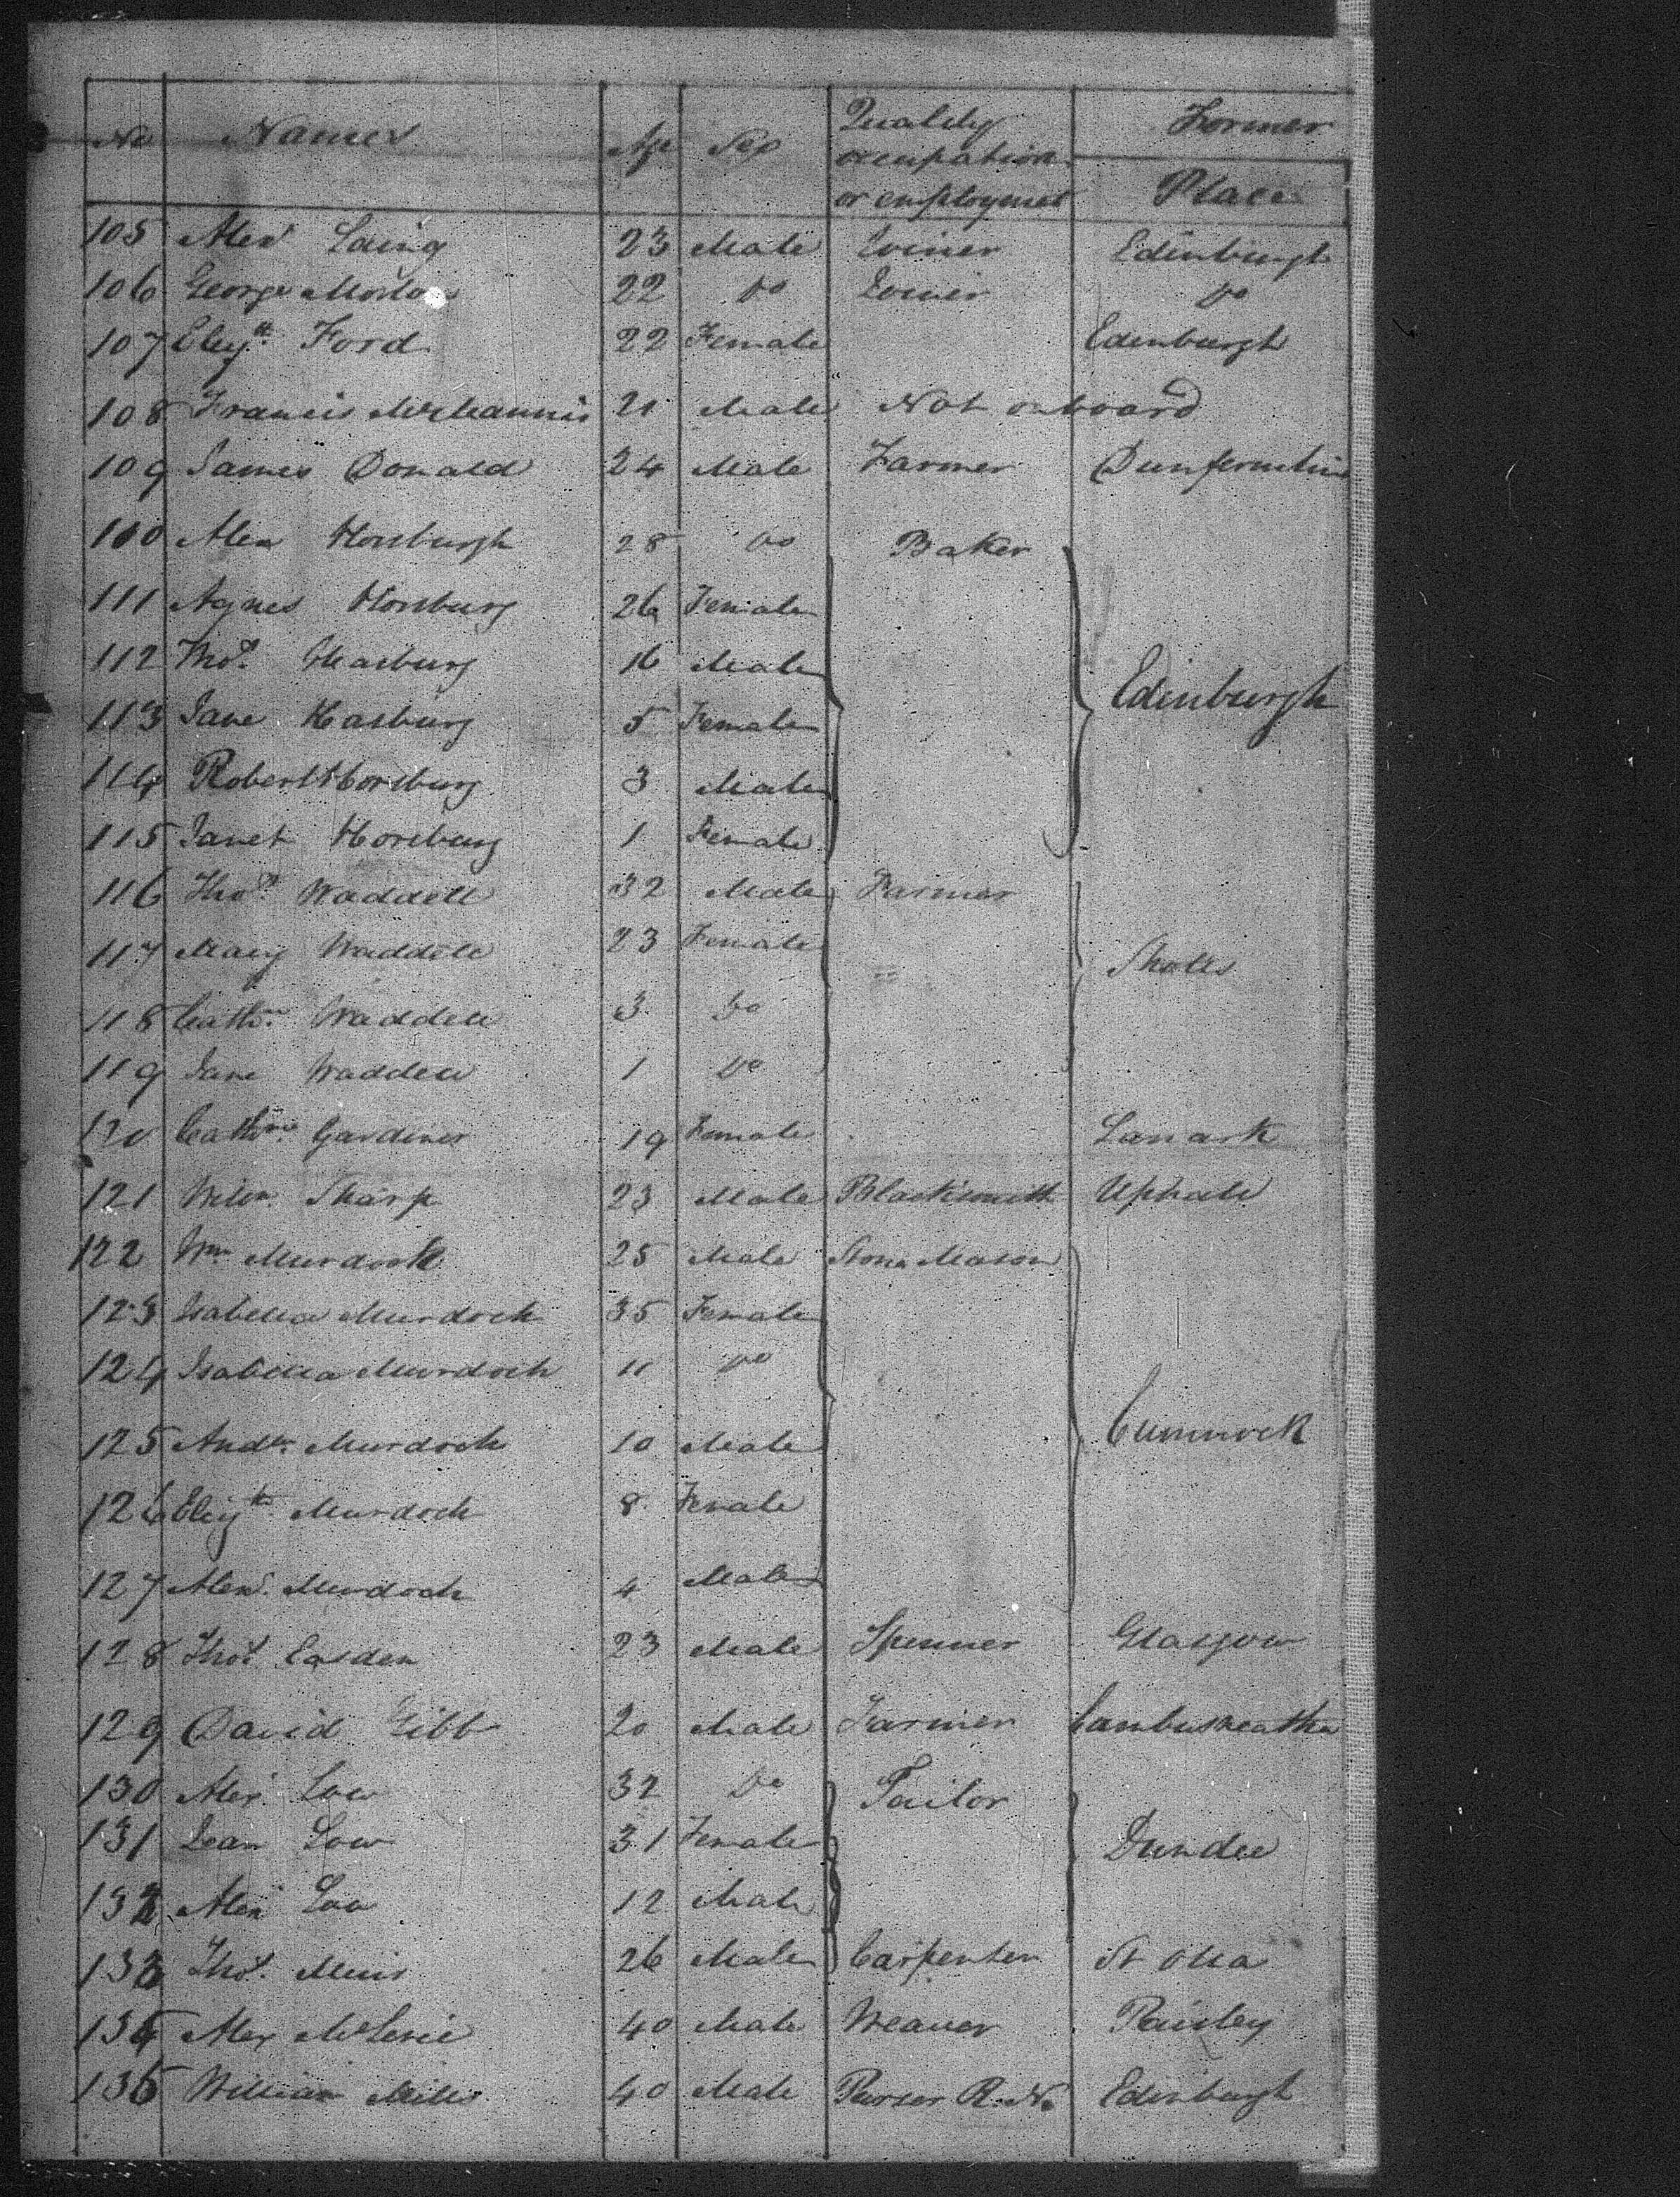 No Names Age Sex Quality occupation or employmet Former Place
105 Alexr Laing 23 Male Joiner Edinburgh
106 George Morton 22 Do Joiner Do
107 Elizth Ford 22 Female Edenburgh
108 Francis McMannis 21 Male Not on board
109 James Donald 24 Male Farmer Dunfermline
110 Alexr Horsburgh 28 Do Baker
111 Agnes Horsburg 26 Female
112 Thos. Hasburg 16 Male
113 Jane Hasburg 5 Female Edinburgh
114 Robert Horsburg 3 Male
115 Janet Horsburg 1 Female
116 Thos. Waddell 32 Male Farmer
117 Mary Waddell 23 Female Shotts
118 Cathn. Waddell 3 Do
119 Jane Waddell 1 Do
120 Cathne. Gardener 19 Female Lanark
121 Willm. Sharp 23 Male Blacksmith Uphall
122 Wm Murdoch 25 Male Stone Mason
123 Isabella Murdoch 35 Female
124 Isabella Murdoch 11 Do
125 Andw. Murdoch 10 Male Cumnock
126 Elizth. Murdoch 8 Female
127 Alexr. Murdoch 4 Male
128 Thos. Easden 23 Male Spinner Glasgow
129 David Gibb 20 Male Farmer Cambusneathen
130 Alexr. Low 32 Do Tailor
131 Jean Low 31 Female Dundee
132 Alexr Low 12 Male
133 Thos. Muir 26 Male Carpenter
134 Alexr 40 Male Weaver Paisley
135 William Mills 40 Male Purser R. N. Edinburgh